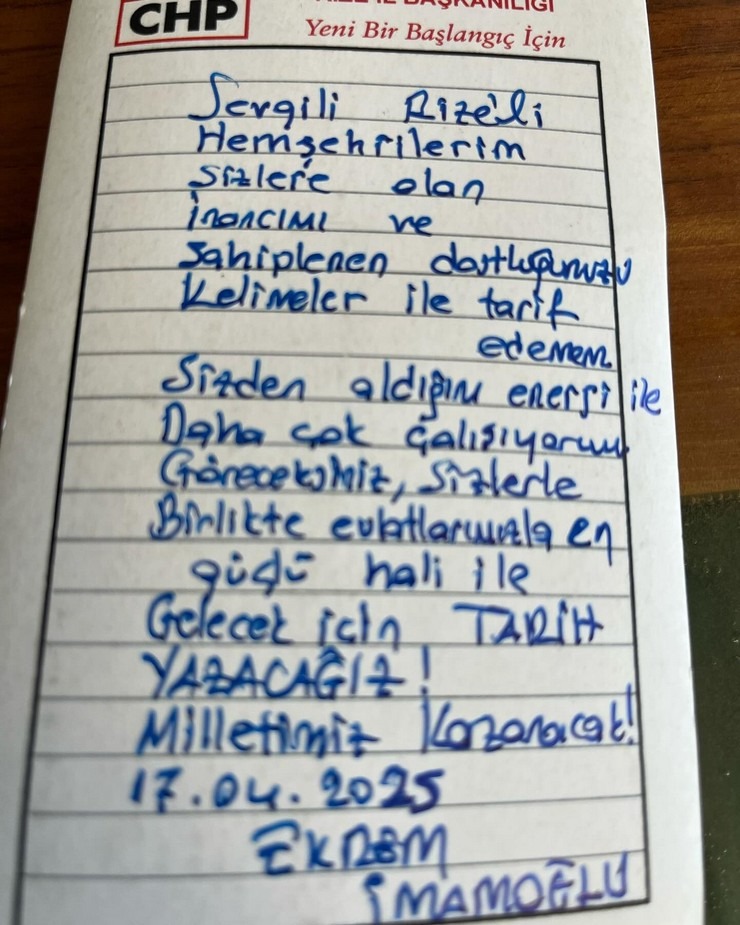 CHP
RİZE İL BAŞKANLIĞI
Yeni Bir Başlangıç İçin
Sevgili Rize'li
Hemşehrilerim
Sizlere olan
İnancımı ve
Sahiplenen dostluğunuzu
Kelimeler ile tarif
edemem
Sizden aldığım enerji ile
Daha çok çalışıyorum
Göreceksiniz, Sizlerle
Birlikte evlatlarımızla en
güçlü hali ile
Gelecek için TARİH
YAZACAĞIZ!
Milletimiz Kazanacak!
17.04.2025
EKREM
İMAMOĞLU